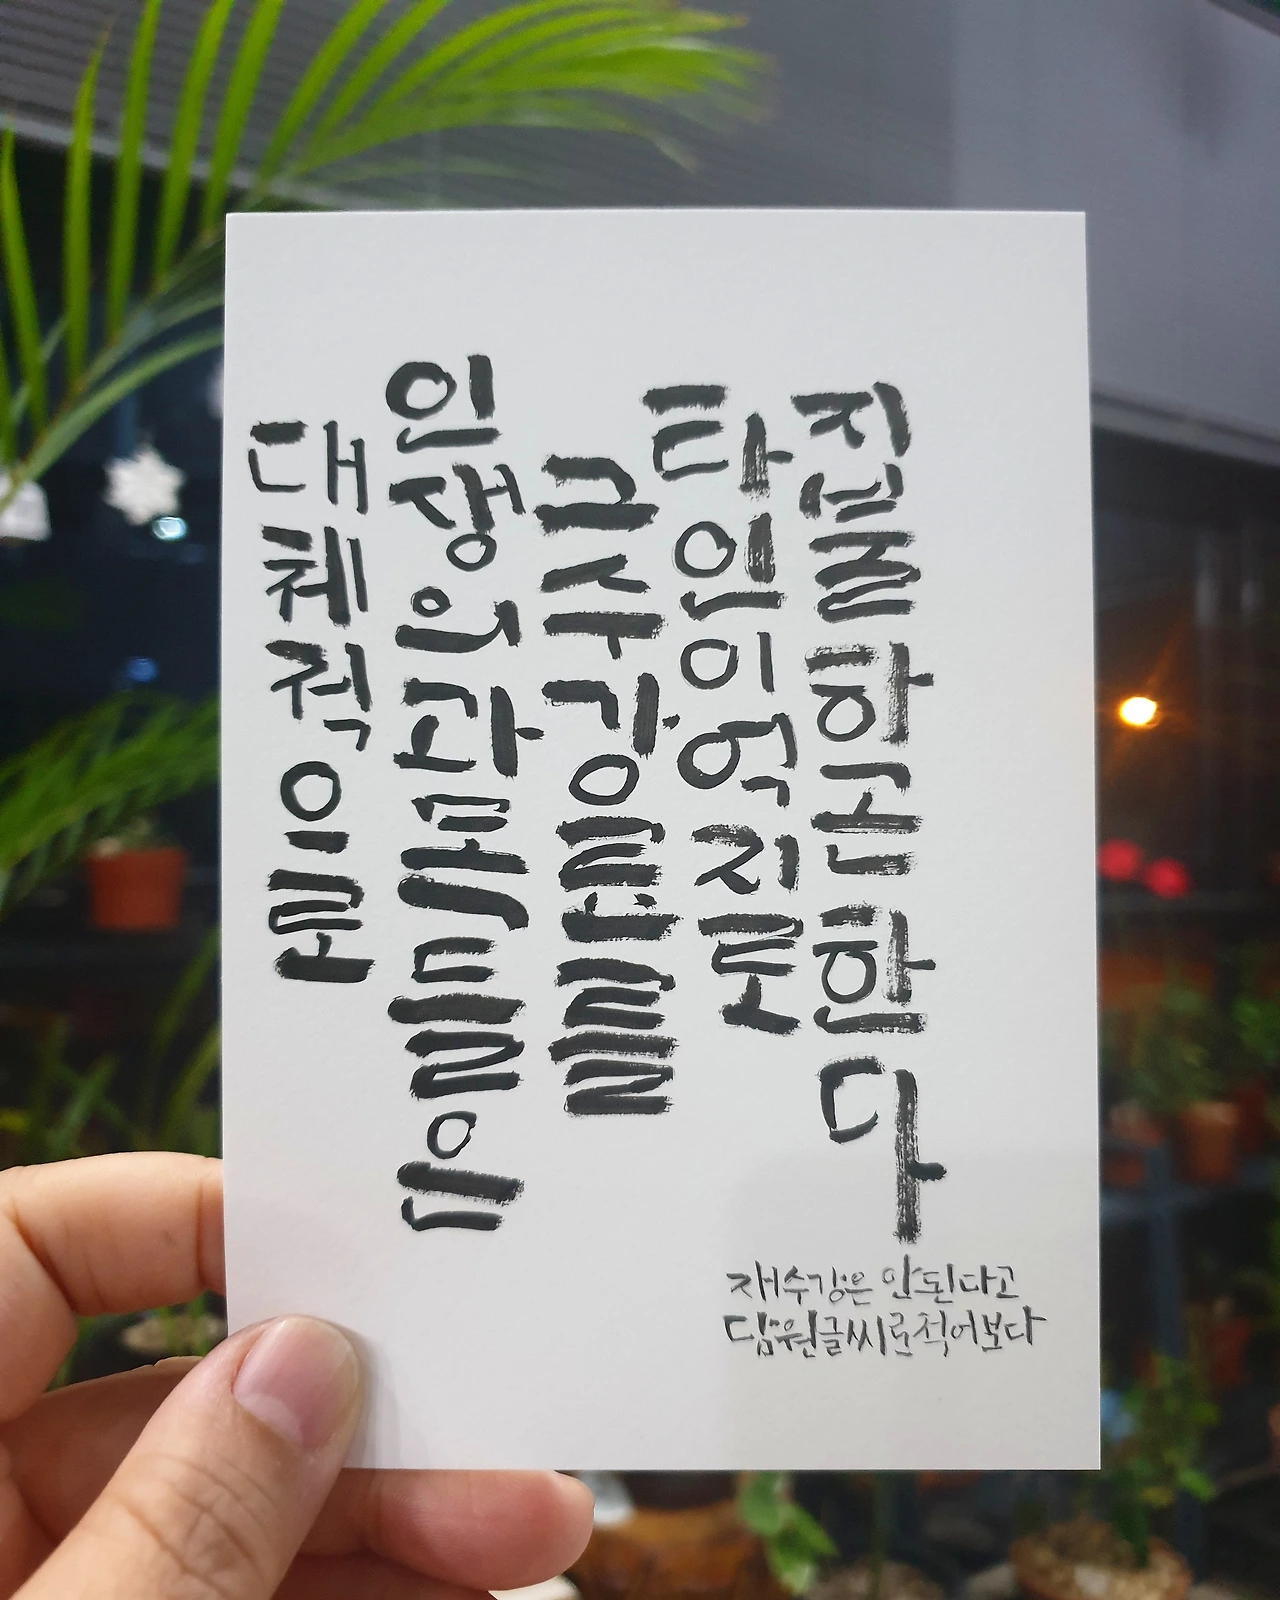 대체적으로
인생의과목들은
그수강료를
타인이억지로
지불하곤한다
재수강은 안된다고
담원글씨로적어보다